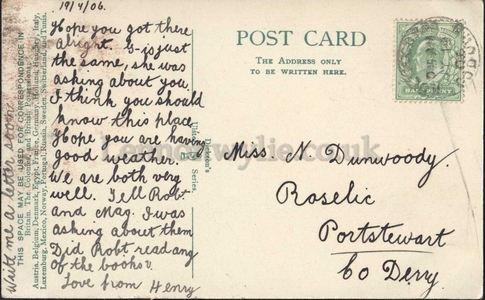 19/4/06.
Hope you got there
alright. G-is just
the same, she was
asking about you
I think you should
know this place
Hope you are having
good weather.
We are both very
well. Tell Robt
and Mag. I was
asking about them
Did Robt read any
of the books
Love from Henry
write me a letter soon
THIS SPACE MAY BE USED FOR CORRESPONDENCE IN
Britain, The Colonies and British Possessions,
Austria, Belgium, Denmark, Egypt, France, Germany, Holland, Hungary, Italy,
Luxemburg, Mexico, Norway, Portugal, Russia, Sweden, Switzerland, and Tunis.
Series
POST CARD
THE ADDRESS ONLY
TO BE WRITTEN HERE.
HALF PENNY
Miss. N Dunwoody.
Roselic
Portstewart
Co Derry.